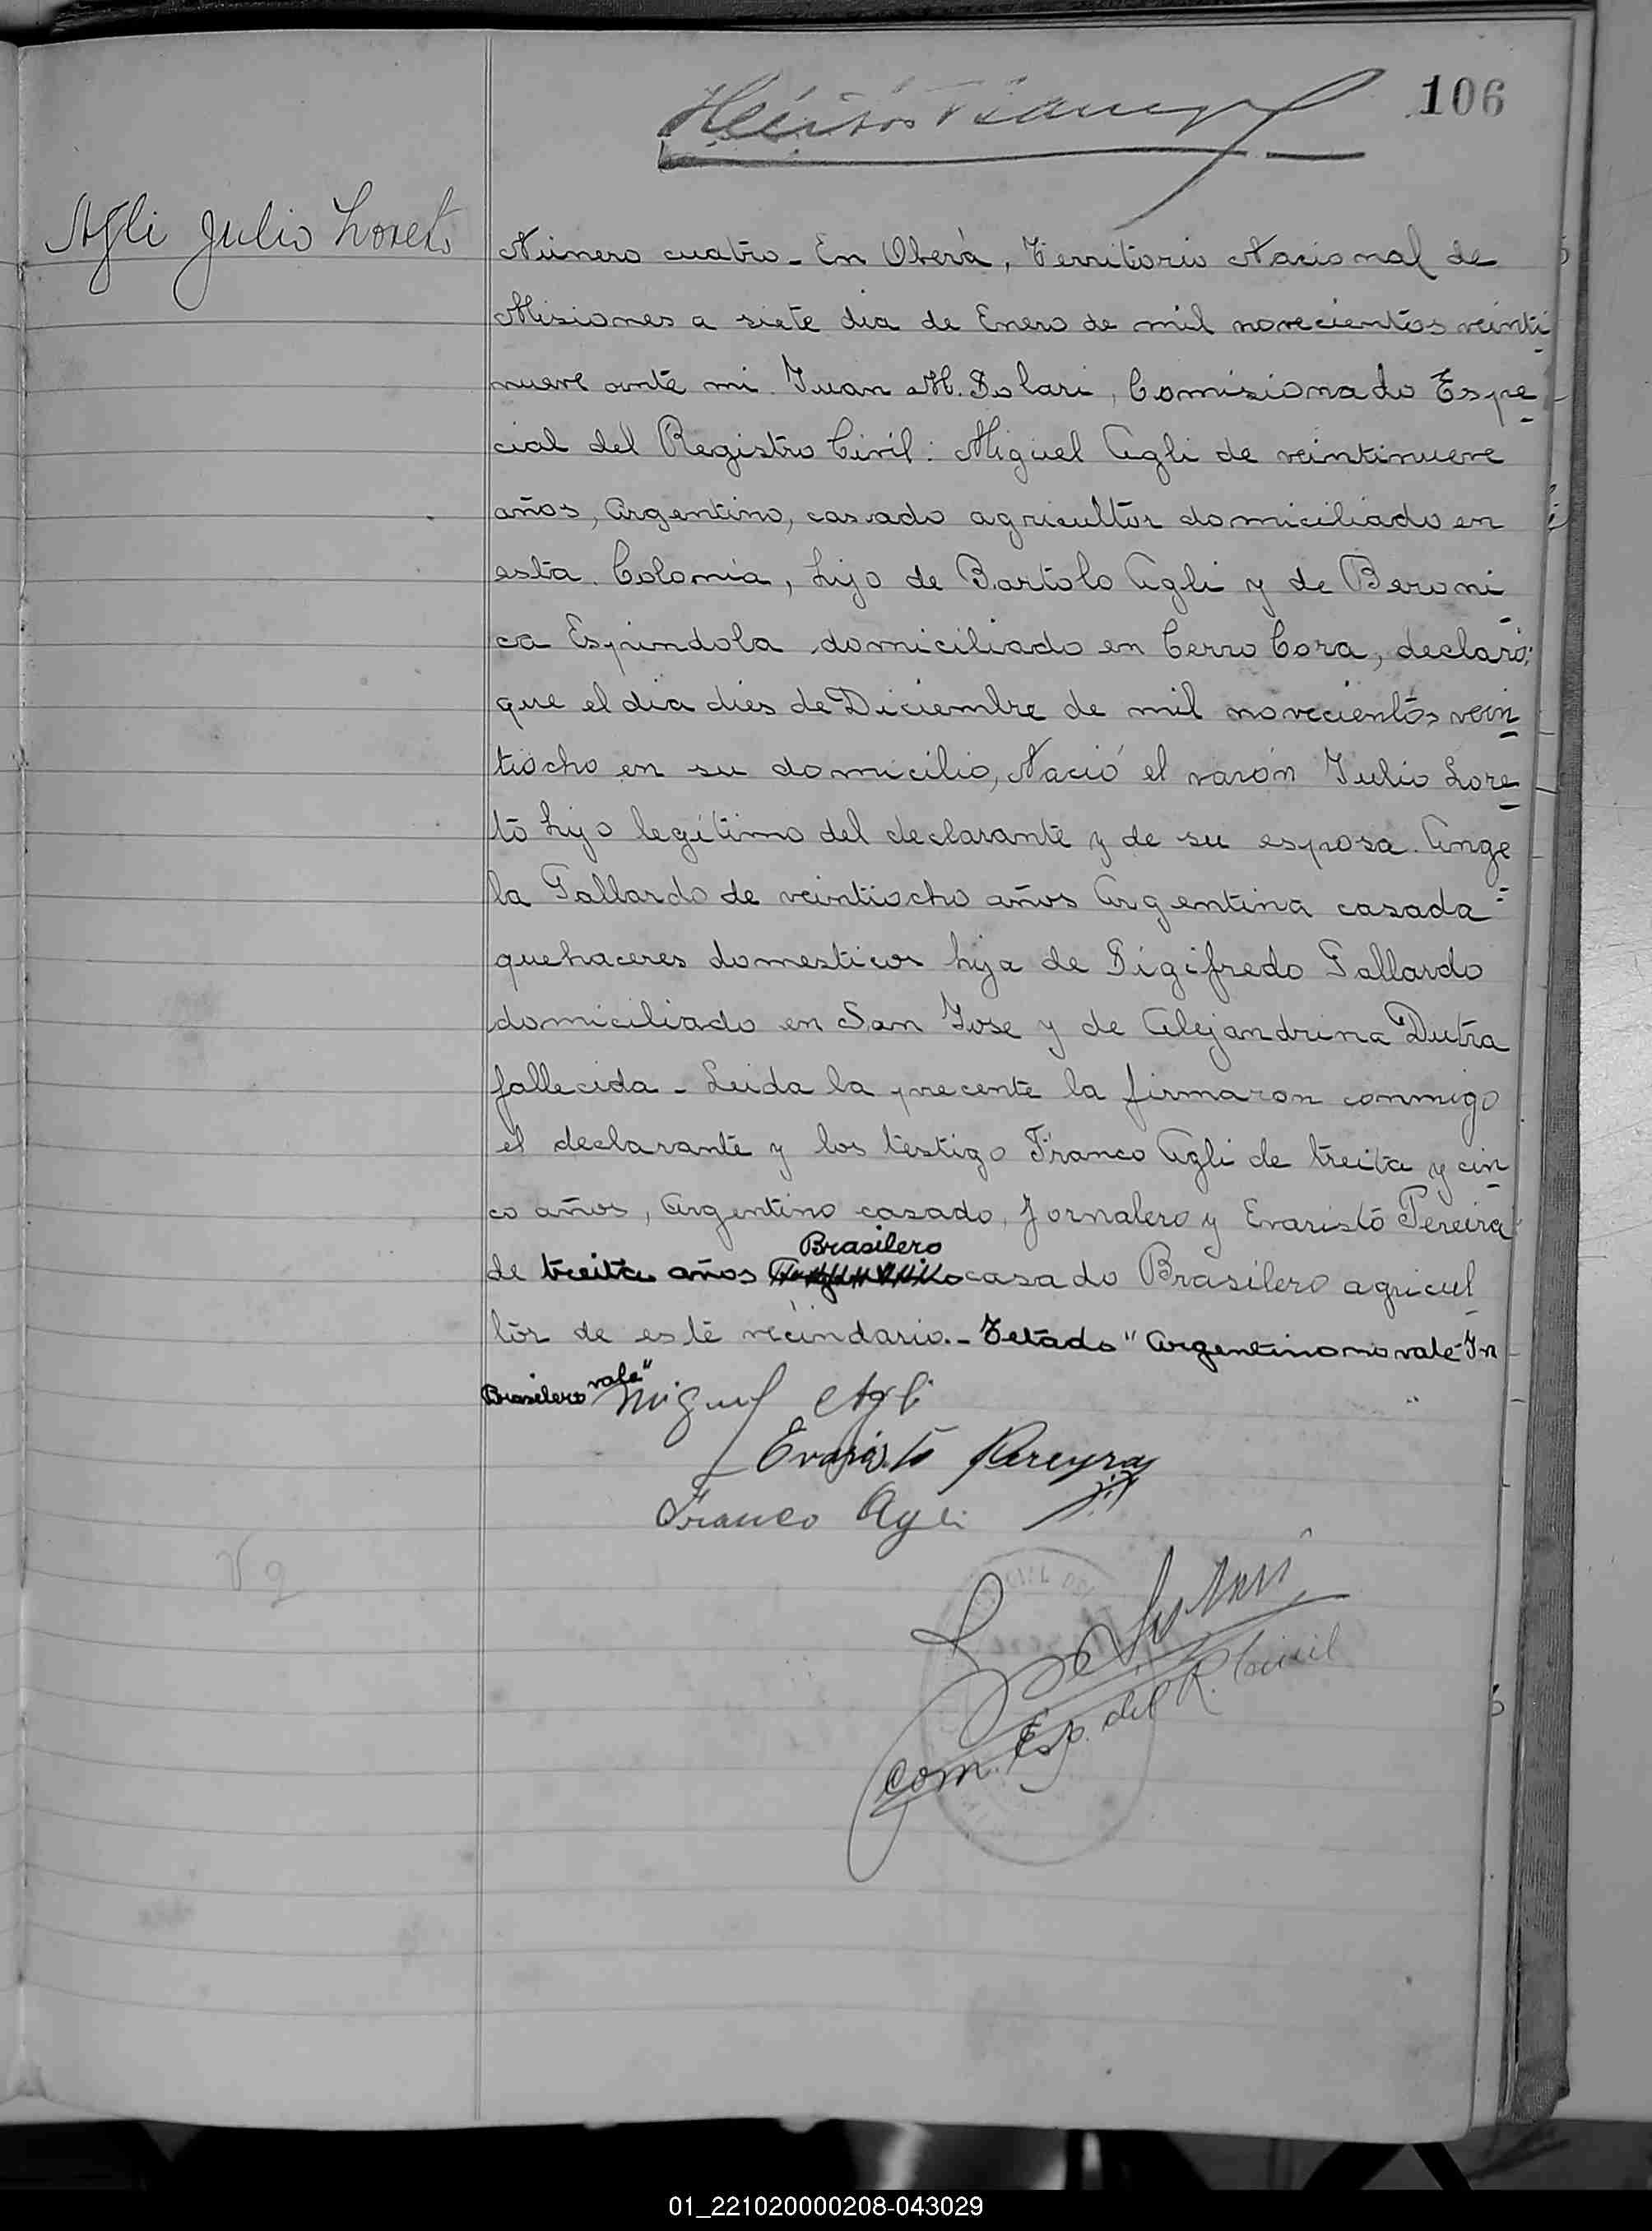 106
Agli Julio Loreto
Número cuatro - En Oberá, Territorio Nacional de
Misiones a siete dia de Enero de mil novecientos veinti
nueve ante mi Juan M. Solari, Comisionado Espe
cial del Registro Civil: Miguel Agli de veintinueve
años, Argentino, casado agricultor domiciliado en
esta Colonia, hijo de Bartolo Agli y de Beroni
ca Espindola domiciliado en Cerro Cora, declaró:
que el dia dies de Diciembre de mil novecientos vein
tiocho en su domicilio, Nació el varón Julio Lore
to hijo legítimo del declarante y de su esposa Ange
la Gallardo de veintiocho años Argentina casada
quehaceres domesticos hija de Sigifredo Gallardo
domiciliado en San Jose y de Alejandrina Dutra
fallecida - Leida la precente la firmaron conmigo
el declarante y los testigo Franco Agli de treita y cin
co años, Argentino casado, Jornalero y Evaristo Pereira
Brasilero
de treita años casado Brasilero agricul
tor de este vecindario. - Tetado "Argentino no vale - In
Brasilero vale"
Miguel Agli
Evaristo Pereyra
Franco Agli
Solari
Com. Esp. del R. Civil
01_221020000208-043029